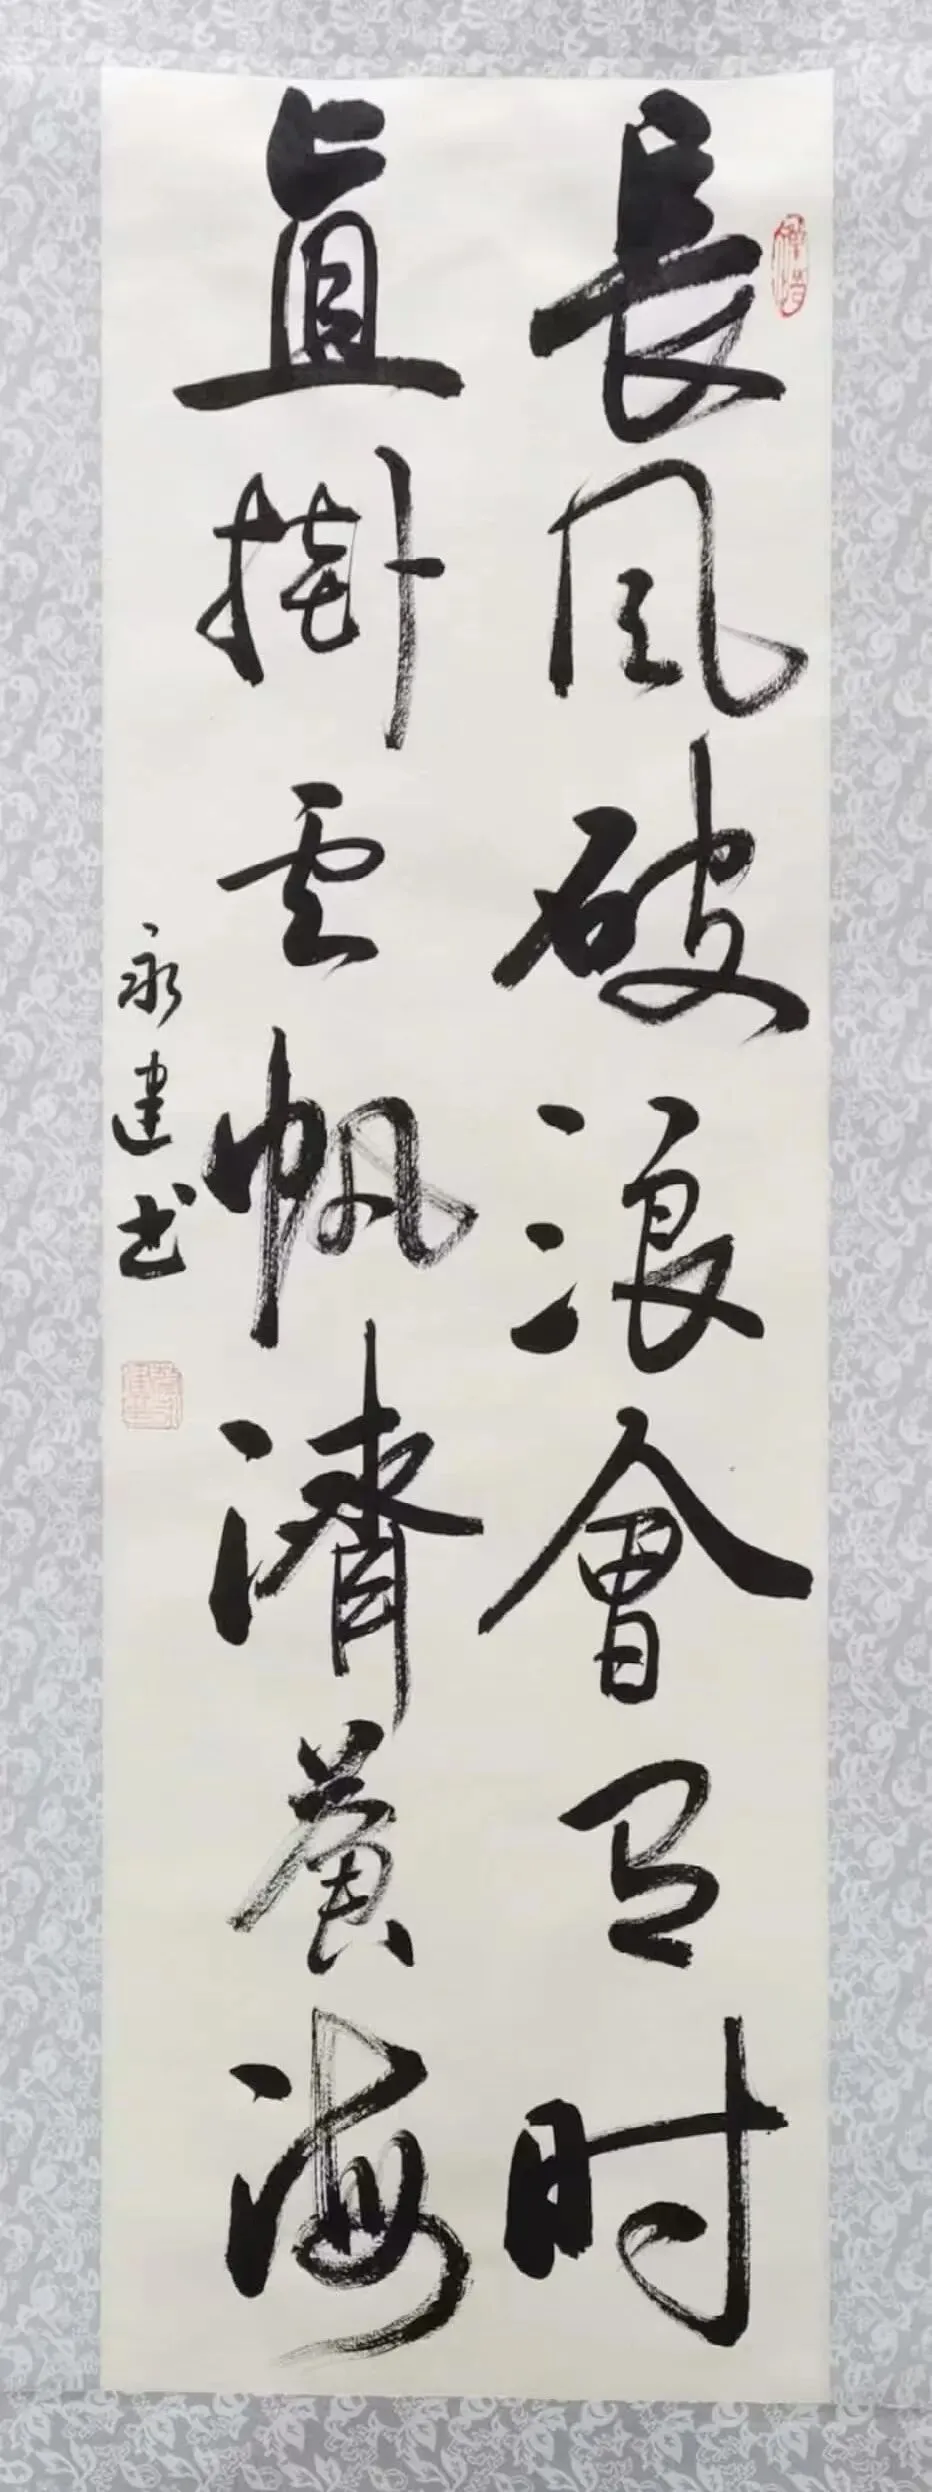 長风破浪會有时
直掛雲帆濟蒼海
永建书